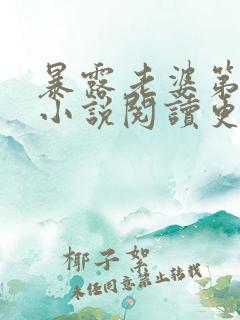 暴露老婆第
小说閱讀免
椰子絮
未经同意禁止转载